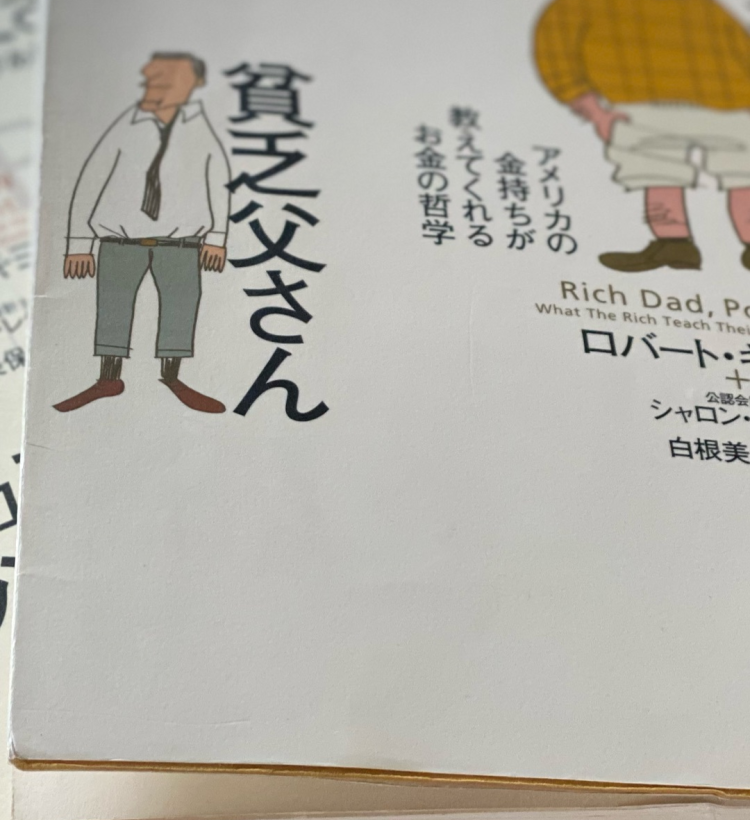 貧乏父さん
アメリカの
金持ちが
教えてくれる
お金の哲学
Rich Dad, Po
What The Rich Teach Thei
ロバート・キ
+
公認会
シャロン・
白根美